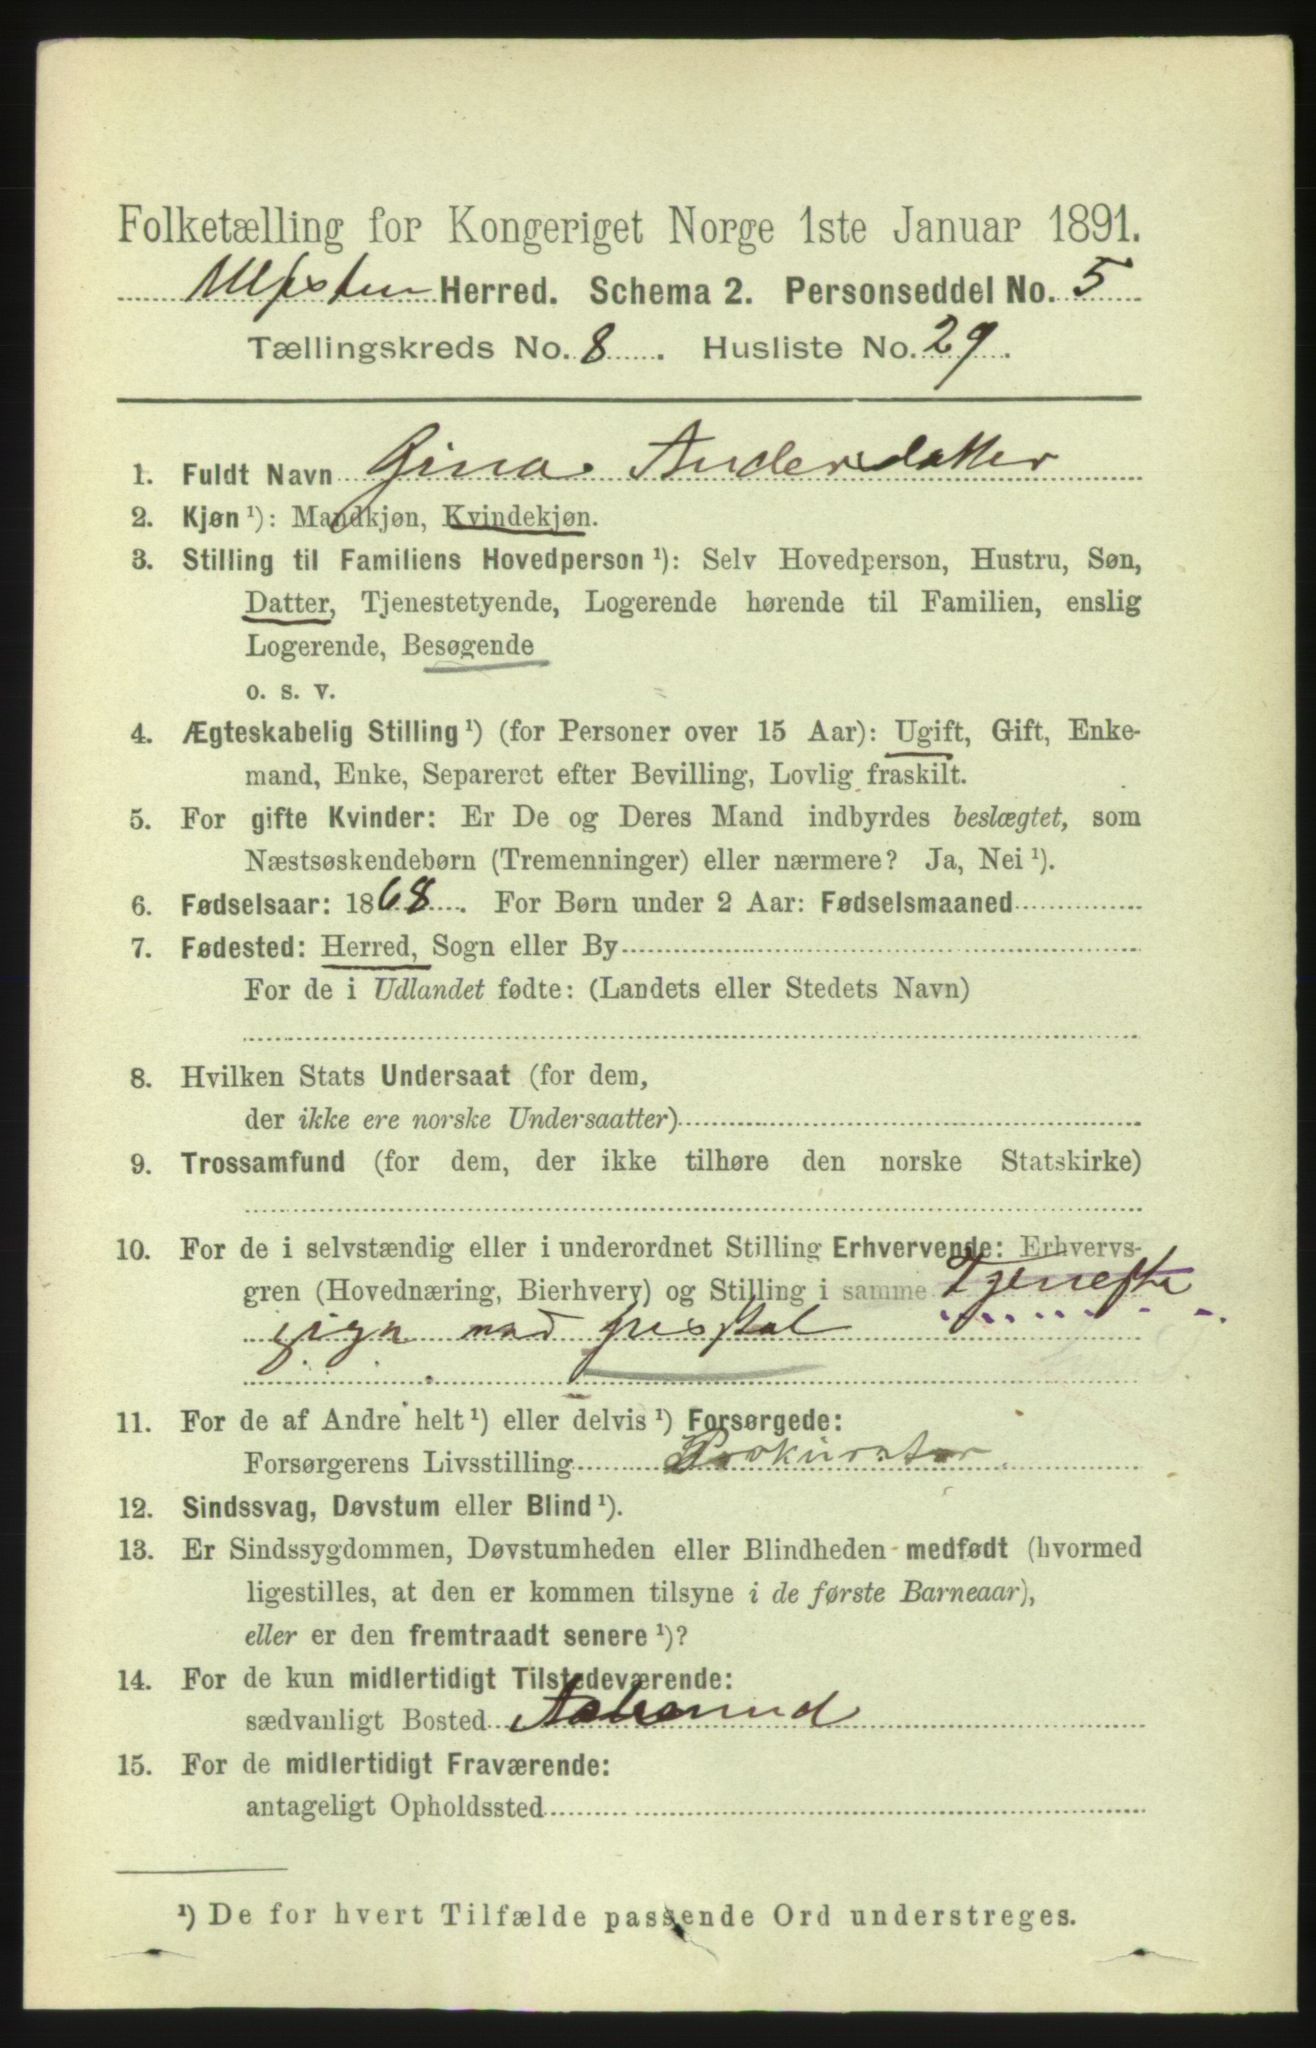 Folketælling for Kongeriget Norge 1ste Januar 1891.
Ulfsten Herred. Schema 2. Personseddel No. 5
Tællingskreds No. 8 . Husliste No. 29 .
1. Fuldt Navn Gina Andersdatter
2. Kjøn ¹): Mandkjøn, Kvindekjøn.
3. Stilling til Familiens Hovedperson ¹): Selv Hovedperson, Hustru, Søn,
Datter, Tjenestetyende, Logerende hørende til Familien, enslig
Logerende, Besøgende
o. s. v.
4. Ægteskabelig Stilling ¹) (for Personer over 15 Aar): Ugift, Gift, Enke-
mand, Enke, Separeret efter Bevilling, Lovlig fraskilt.
5. For gifte Kvinder: Er De og Deres Mand indbyrdes beslægtet, som
Næstsøskendebørn (Tremenninger) eller nærmere? Ja, Nei ¹).
6. Fødselsaar: 1868. For Børn under 2 Aar: Fødselsmaaned
7. Fødested: Herred, Sogn eller By
For de i Udlandet fødte: (Landets eller Stedets Navn)
8. Hvilken Stats Undersaat (for dem,
der ikke ere norske Undersaatter)
9. Trossamfund (for dem, der ikke tilhøre den norske Statskirke)
10. For de i selvstændig eller i underordnet Stilling Erhvervende: Erhvervs-
gren (Hovednæring, Bierhverv) og Stilling i samme Tjeneste
pige
11. For de af Andre helt ¹) eller delvis ¹) Forsørgede:
Forsørgerens Livsstilling Prokurator
12. Sindssvag, Døvstum eller Blind ¹).
13. Er Sindssygdommen, Døvstumheden eller Blindheden medfødt (hvormed
ligestilles, at den er kommen tilsyne i de første Barneaar),
eller er den fremtraadt senere ¹)?
14. For de kun midlertidigt Tilstedeværende:
sædvanligt Bosted Aalesund
15. For de midlertidigt Fraværende:
antageligt Opholdssted
¹) De for hvert Tilfælde passende Ord understreges.